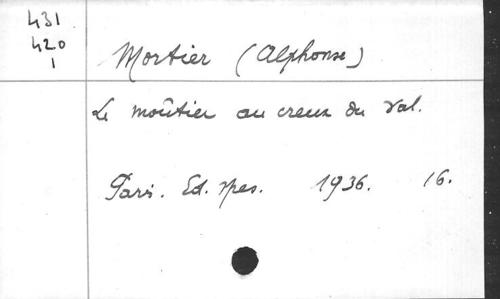 431
420
1
Mortier (Alphonse)
Le moûtier au creux du Val.
Paris. Ed. Spes. 1936. 16.